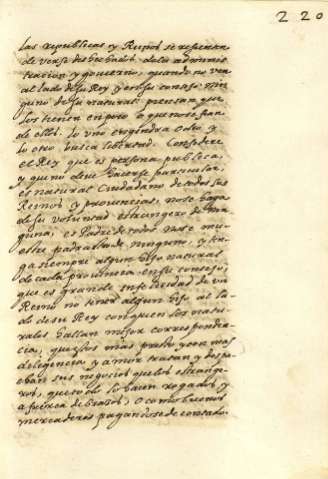 220
las republicas y Reinos se resienten
de verse desechados de la adminis
tracion y govierno, quando no ven
al lado de su Rey y en su consejo nin
guno de su natural: piensan que
los tienen en poco o que no se fian
de ellos. lo uno engendra odio y
lo otro busca libertad. Considere
el Rey que es persona publica,
y que no deve hacerse particular,
es natural Ciudadano de todos sus
Reinos y provincias, no se haga
de su voluntad estrangero de nin
guna; es Padre de todos no se mu
estre padrastro de ninguno, y ten
ga siempre algun hijo natural
de cada provincia en su consejo,
que es grande infelicidad de un
Reino no tener algun hijo al la
do de su Rey con quien los natu
rales hallan mejor corresponden
cia, que estos mas presto y con mas
deligencia y amor tratan y despa
chan sus negocios que los estrange
ros, que solo lo hacen rogados y
a fuerça de brazos, o como buenos
mercaderes pagandose de contado.